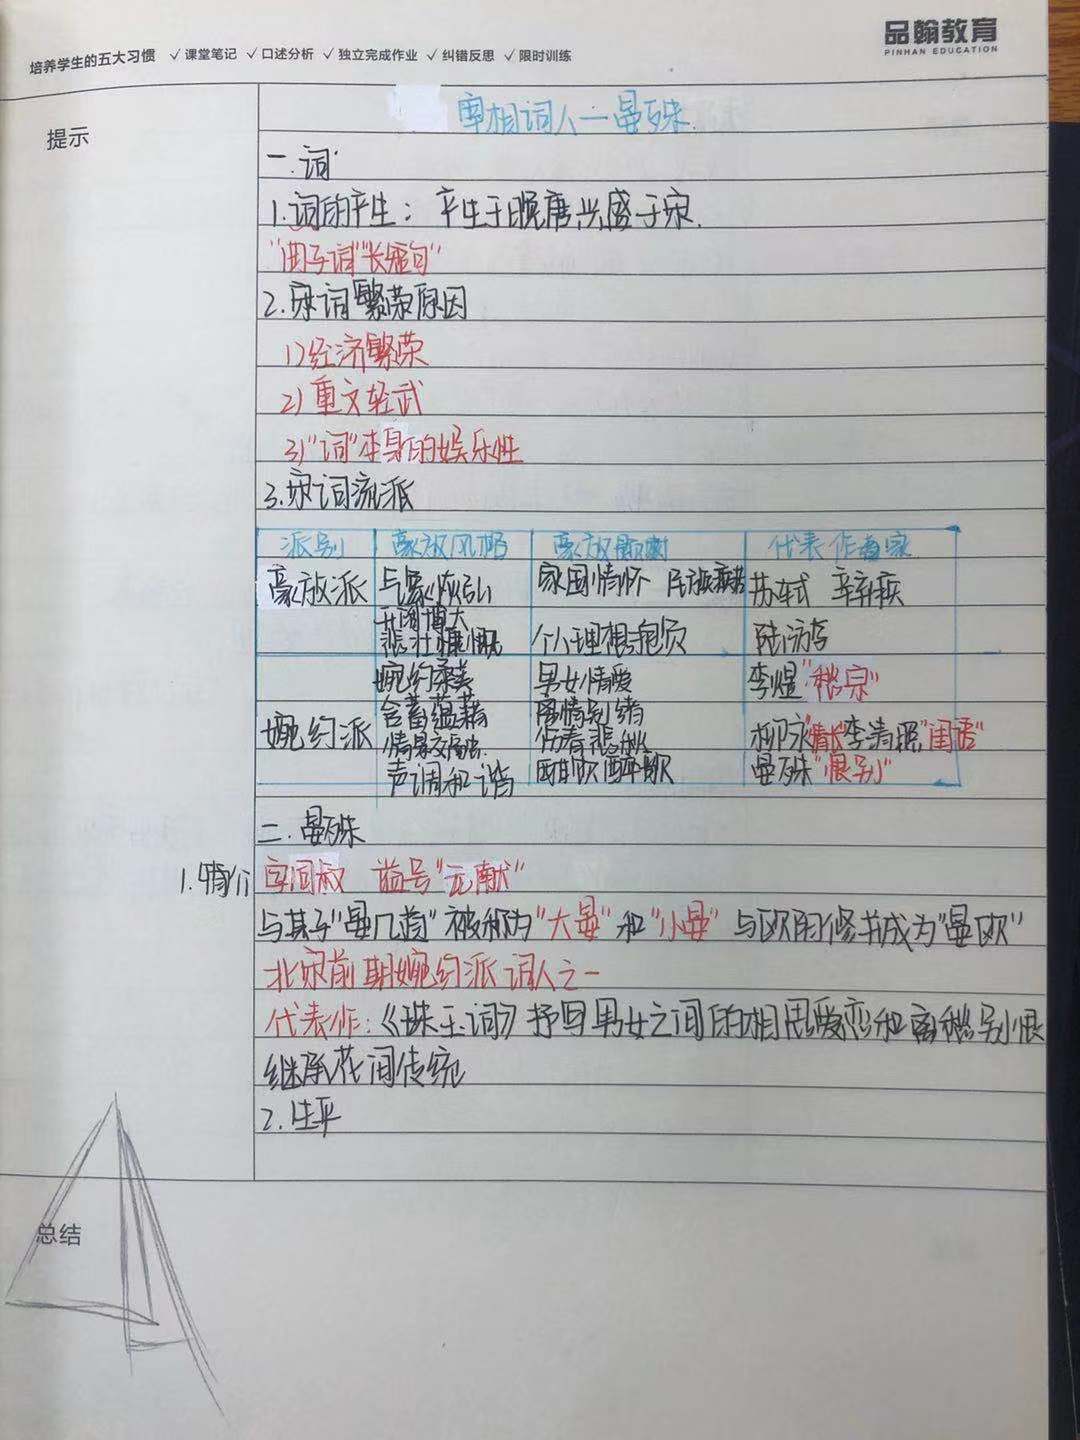 培养学生的五大习惯 ✓课堂笔记 ✓口述分析 ✓独立完成作业 ✓纠错反思 ✓限时训练
品翰教育
PINHAN EDUCATION
提示
宰相词人—晏殊
一.词
1.词的产生：产生于晚唐兴盛于宋.
"曲子词""长短句"
2.宋词繁荣原因
1)经济繁荣
2)重文轻武
3)"词"本身的娱乐性
3.宋词流派
派别 豪放风格 豪放 代表作家
豪放派 气象恢弘 家国情怀 民族 苏轼 辛弃疾
开阔博大
悲壮慷慨 个人理想抱负 陆游
婉约柔美 男女情爱 李煜"愁宗"
含蓄蕴藉 离情别绪
婉约派 情景交融 伤春悲秋 柳永"情长"李清照"闺语"
声调和谐 酣歌醉歌 晏殊"恨别"
二.晏殊
1.简介 字同叔 谥号"元献"
与其子"晏几道"被称为"大晏"和"小晏" 与欧阳修并成为"晏欧"
北宋前期婉约派词人之一
代表作：《珠玉词》抒写男女之间的相思爱恋和离愁别恨
继承花间传统
2.生平
总结